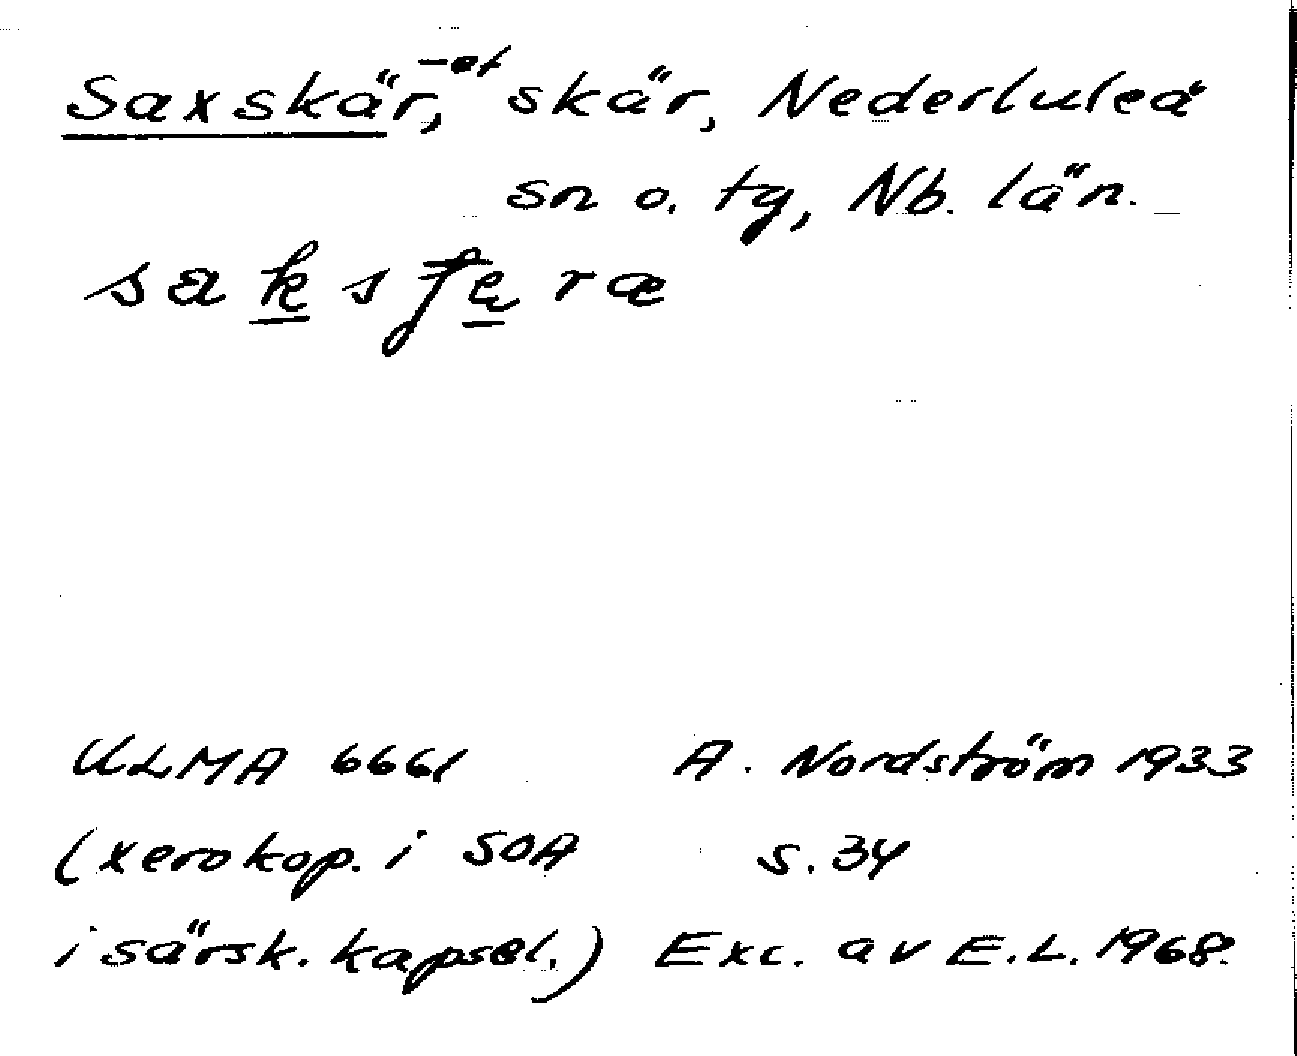 Saxskär, -et skär, Nederluleå
sn o. tg, Nb. län.
ULMA 6661 A. Nordström 1933
(xerokop. i SOA s. 34
i särsk. kapsel.) Exc. av E.L. 1968.